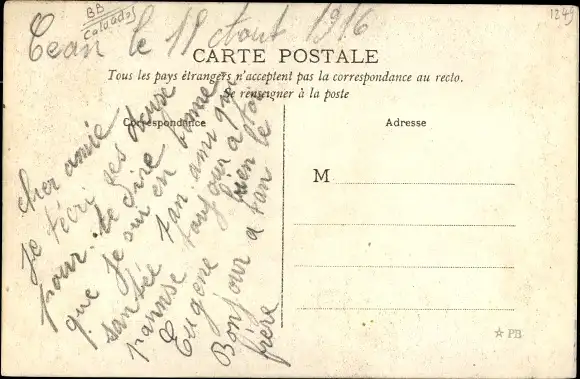 BB
Calvados
1249
Cean le 18 aout 1916
CARTE POSTALE
Tous les pays étrangers n'acceptent pas la correspondance au recto.
Se renseigner à la poste
Correspondance
Adresse
M
cher amie
Je técri ses deuse
pour te dire
que je sui en bonne
santée ton ami qui
pannse toujour a toi
Eugene bien le
Bonjour a tan
frère
PB